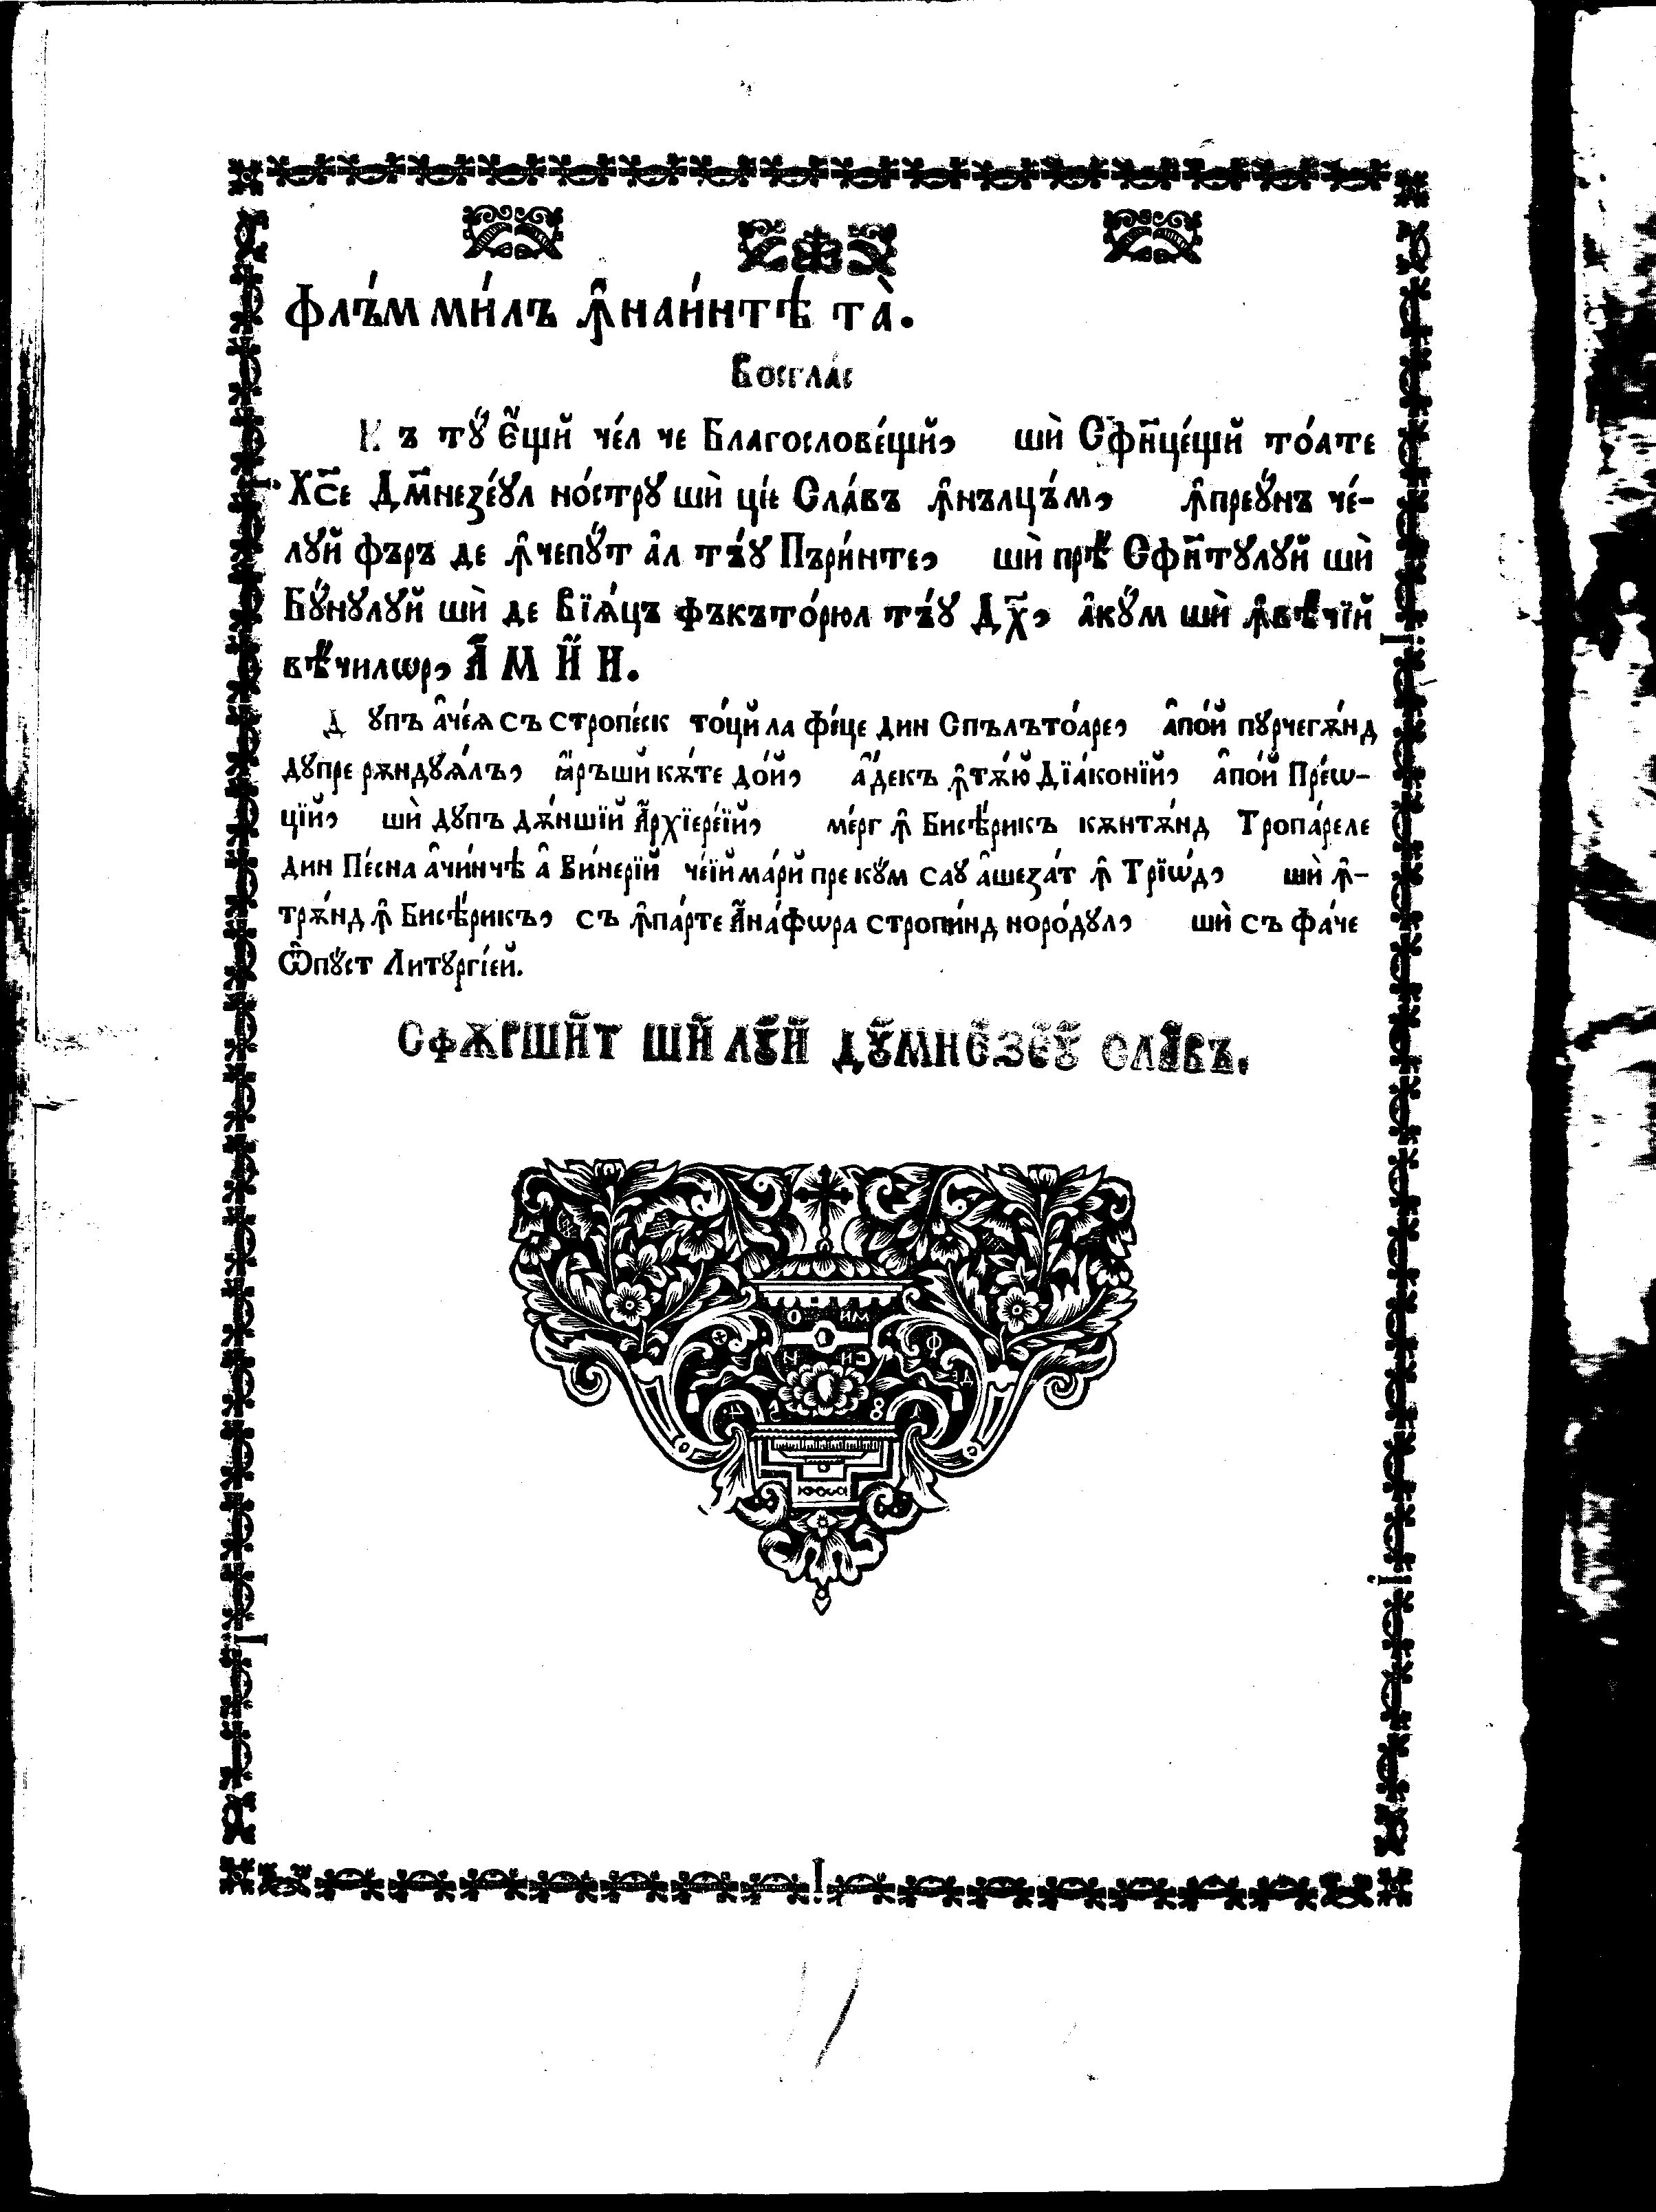 флъ́м ми́лъ ꙟ҆наи́нтѣ та̀.
Восгла́с
Къ тꙋ҆́ є҆́щй че́л че Благослове́щй, шѝ Сфи҃це́щй то́ате
Хс҃е Дм҃незе́ꙋл но́стрꙋ шѝ ціе Сла́въ ꙟ҆нълцъ́м, ꙟ҆преꙋ҆́нъ че́-
лꙋй фъръ де ꙟ҆чепꙋ҆́т а҆л тъ́ꙋ Пъри́нте, шѝ прѣ Сфи҃тꙋлꙋй шѝ
Бꙋ҆́нꙋлꙋй шѝ де Вїѧ́цъ фъкъто́рюл тъ́ꙋ Дх҃, а҆кꙋ҆́м шѝ ꙟ҆вѣ́чїй
вѣ́чилѡр, А҆́МИ҆́Н.
Дꙋпъ а҆че́ѧ съ стропе́ск то́цй ла фе́це дин Спълъто́аре, а҆по́й пꙋрчегѫ́нд
дꙋпре рѫндꙋѧ́лъ, ꙗ҆́ръшй кѫ́те до́й, а҆́декъ ꙟ҆тѫ́ю Дїа́конїй, а҆по́й Пре́ѡ-
ції, шѝ дꙋпъ дѫ́ншїй А҆рхїере́їй, ме́рг ꙟ҆ Бисѣ́рикъ кѫнтѫ́нд Тропа́реле
дин Пе́сна а҆чи́нчѣ а҆ Ви́нерїй че́їй ма́рй прекꙋ́м саꙋ а҆шеза́т ꙟ҆ Трїѡ́д, шѝ ꙟ҆-
трѫ́нд ꙟ҆ Бисѣ́рикъ, съ ꙟ҆па́рте А҆на́фѡра стропи́нд норо́дꙋл, шѝ съ фа́че
Ѿпꙋ́ст Литꙋргі́ей.
Сфѫршит ши лꙋй Дꙋмнезеꙋ Славъ.